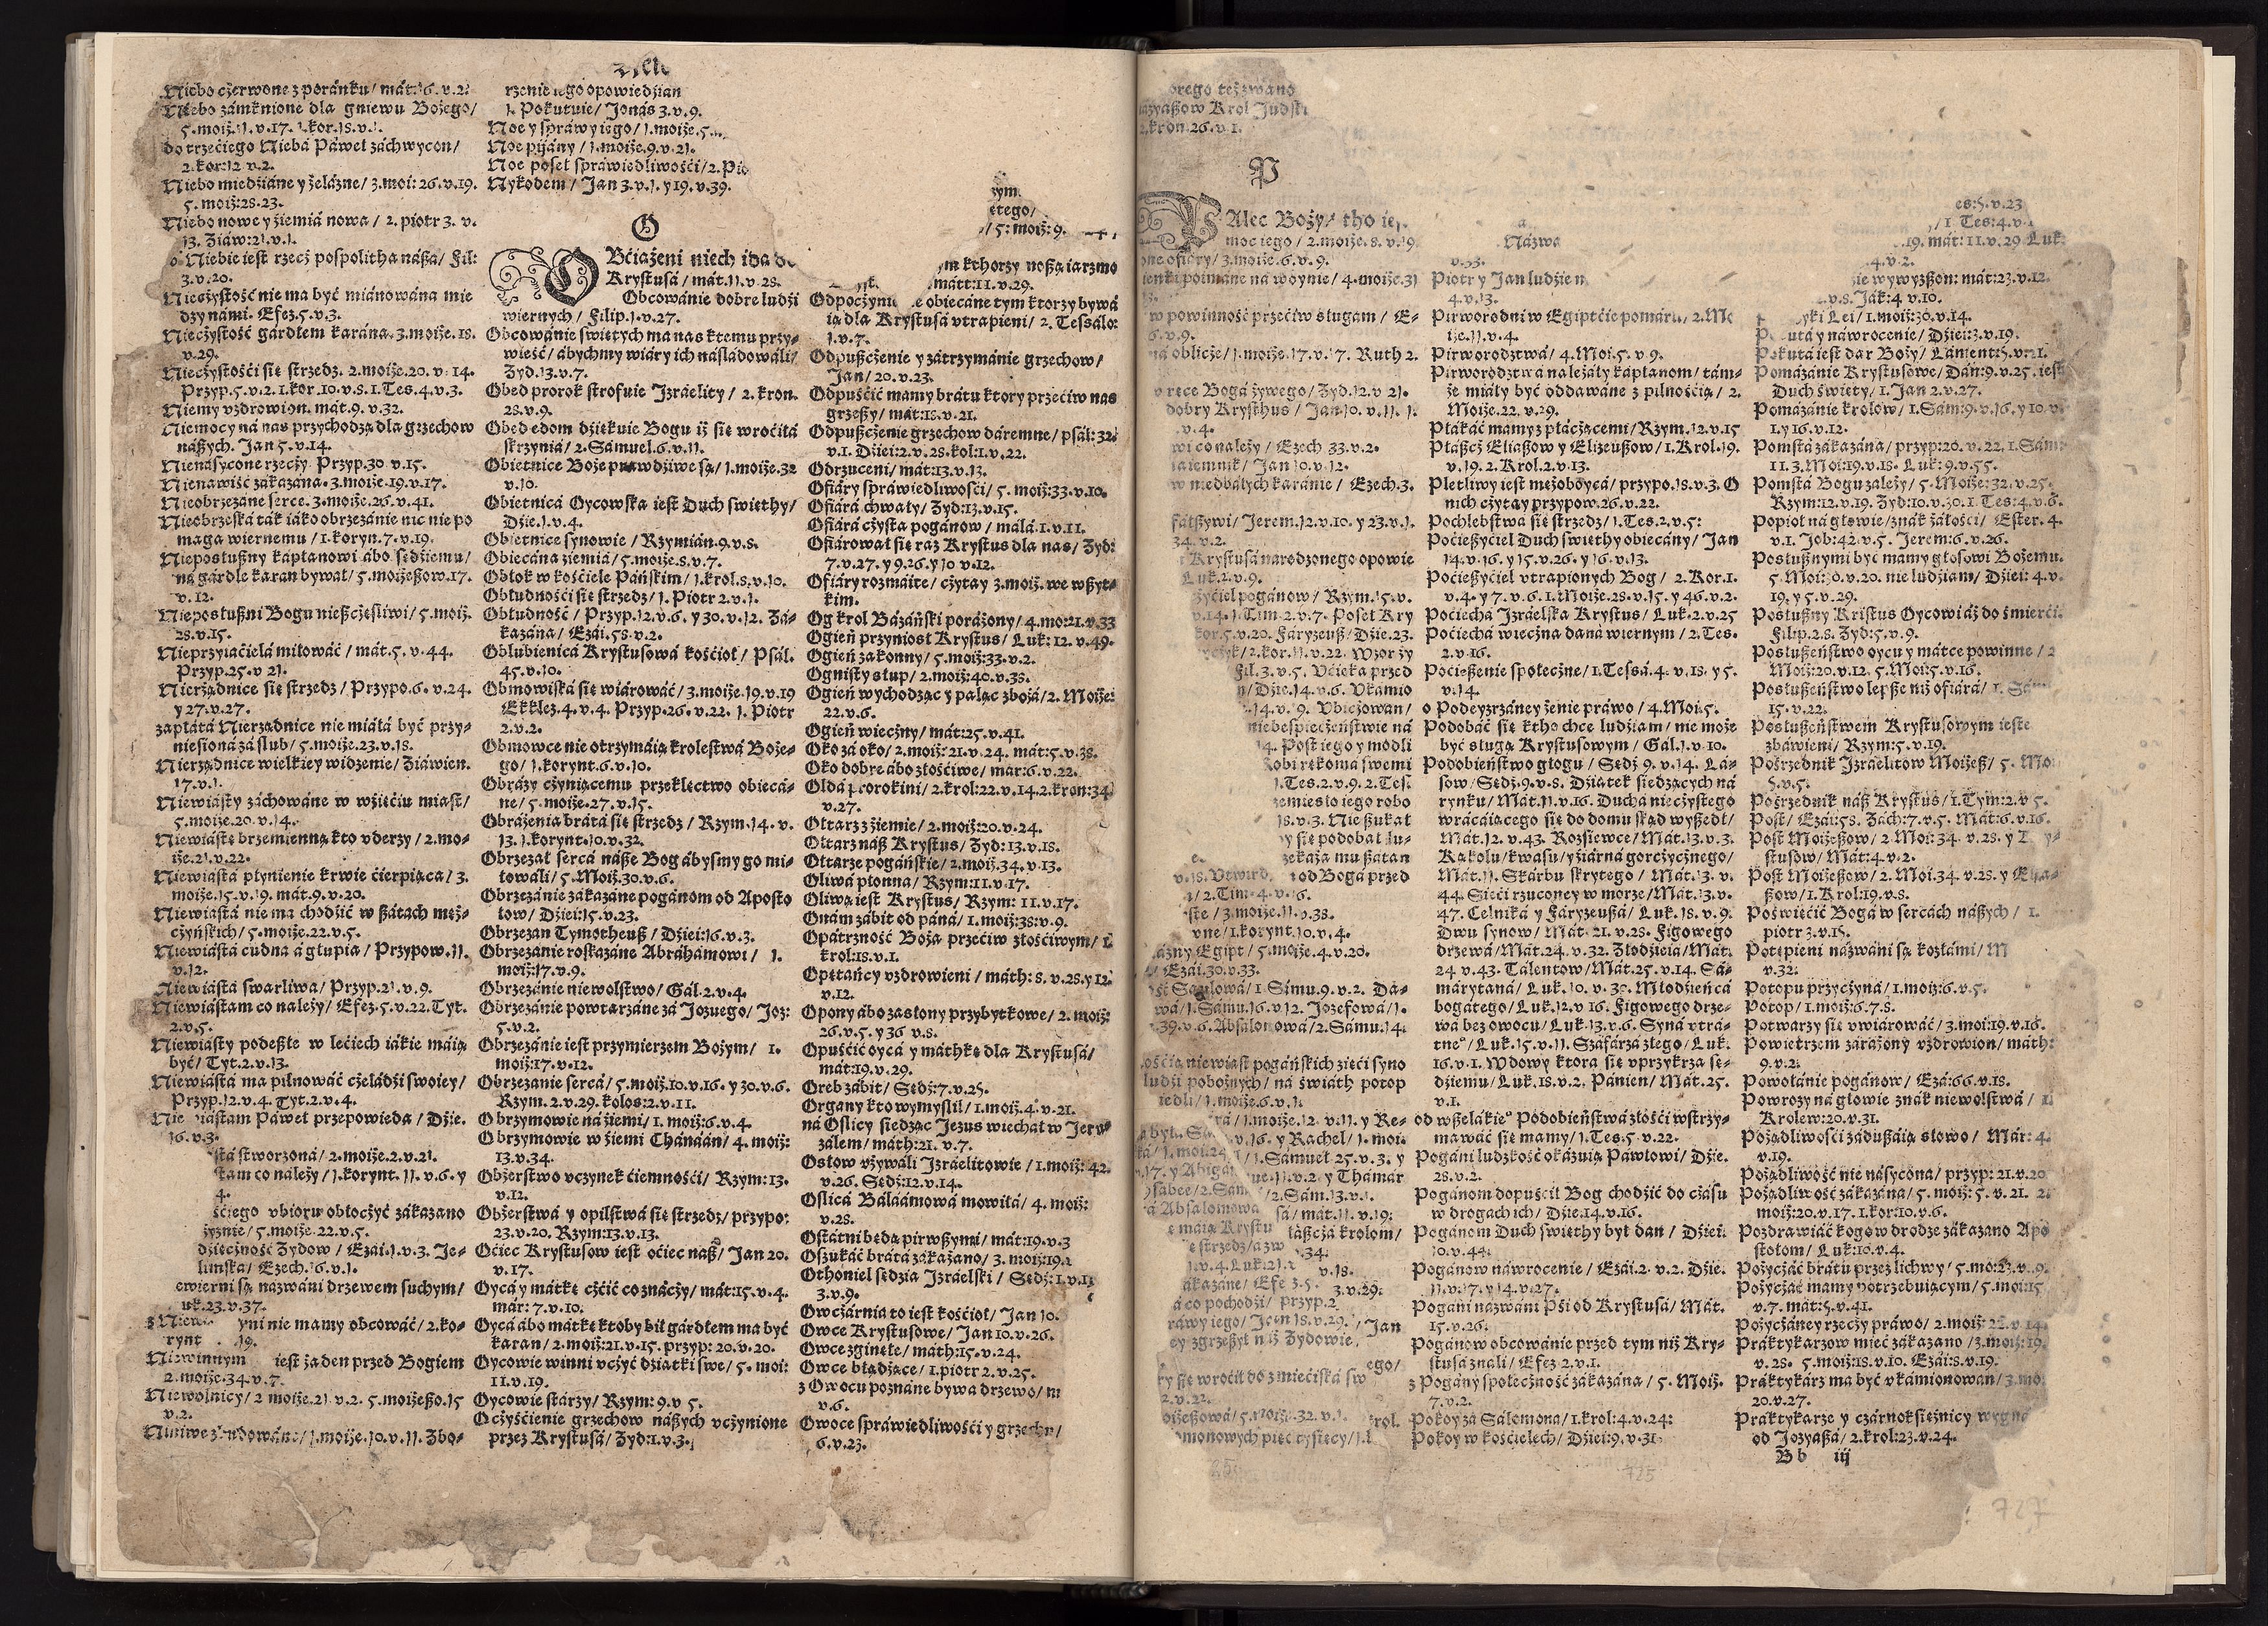 Niebo czerwone z poránku / mát:16. v.2:
Niebo zámknione dla gniewu Bożego/
5.moiż.11.v.17. 1.kor.18.v.1.
do trzećiego Niebá Páweł záchwycon/
2.kor:12 v.2.
Niebo miedźiáne y żelázne/ 3.moi:26.v.19.
5.moiż:28.23.
Niebo nowe y źiemiá nowa / 2. piotr 3. v.
13. Ziáw:21.v.1.
Niebie iest rzecż pospolitha náßá/ Fil:
3.v.20.
Niecżystość nie ma być miánowána mie
dzy námi. Efez.5.v.3.
Niecżystość gárdłem karána. 3.moiże.18.
v.29.
Niecżystośći się strzedz. 2.moiże.20.v.14.
Przyp.5.v.2.1.kor.10.v.8.1.Tes.4.v.3.
Niemy vzdrowion. mát.9.v.32.
Niemocy ná nas przychodzą dla grzechow
náßych. Jan 5.v.14.
Nienásycone rzecży Przyp.30 v.15.
Nienawiść zákazána. 3.moiże.19.v.17.
Nieobrzezáne serce. 3.moiże.26.v.41.
Nieobrzeská ták iáko obrzezánie nic nie po
maga wiernemu / 1.koryn.7.v.19.
Nieposłußny kápłanowi ábo sędźiemu/
ná gárdle karan bywał/ 5.moiżeßow.17.
v.12.
Nieposłußni Bogu nießcżęśliwi/ 5.moiż.
28.v.15.
Nieprzyiaćielá miłowáć / mát.5.v.44.
Przyp.25.v 21.
Nierządnice się strzedz/ Przypo.6.v.24.
y 27.v.27.
zapłátá Nierządnice nie miáłá być przy-
niesioná zá ślub/ 5.moiże.23.v.18.
Nierządnice wielkiey widzenie/ Ziáwien.
17.v.1.
Niewiásty záchowáne w wźięćiu miast/
5.moiże.20.v.14.
Niewiástę brzemienną kto vderzy / 2.mo-
iże.21.v.22.
Niewiástá płynienie krwie ćierpiąca/ 3.
moiże.15.v.19. mát.9.v.20.
Niewiástá nie ma chodźić w ßátach męż-
cżyńskich/ 5.moiże.22.v.5.
Niewiástá cudna á głupia / Przypow.11.
v.12.
Niewiástá swarliwa/ Przyp.21.v.9.
Niewiástam co należy/ Efez.5.v.22.Tyt.
2.v.5.
Niewiásty podeßłe w lećiech iákie máią
być/ Tyt.2.v.13.
Niewiástá ma pilnowáć cżeládźi swoiey/
Przyp.12.v.4. Tyt.2.v.4.
Páweł przepowieda / Dźie.
16.v.3.
stworzoná/ 2.moiże.2.v.21.
co należy/ 1.korynt.11.v.6.y
4.
vbioru obłocżyć zákazano
5.moiże.22.v.5.
Zydow / Ezái.1.v.3. Je-
Ezech.16.v.1.
są nazwáni drzewem suchym/
23.v.37.
nie mamy obcowáć/ 2.ko-
19.
Niewinnym iest żaden przed Bogiem
2.moiże.34.v.7.
Niewolnicy/ 2 moiże.21.v.2. 5.moiżeßo.15
v.2.
1.moiże.10.v.11. Zbo-
rzenie iego opowiedźian
1. Pokutuie/ Jonás 3.v.9.
Noe y spráwy iego/ 1.moiże.5.
Noe pijány / 1.moiże.9.v.21.
Noe poseł spráwiedliwośći/ 2.Pio
Nykodem / Jan 3.v.1. y 19.v.39.
O
OBćiążeni niech idą do
Krystusá / mát.11.v.28.
Obcowánie dobre ludźi
wiernych / Filip.1.v.27.
Obcowánie świętych ma nas k temu przy-
wieść / ábychmy wiáry ich násládowáli/
Zyd.13.v.7.
Obed prorok strofuie Izráelity / 2. kron.
28.v.9.
Obed edom dźiękuie Bogu iż się wroćiłá
skrzyniá / 2.Sámuel.6.v.11.
Obietnice Boże prawdźiwe są/ 1.moiże.32
v.10.
Obietnicá Oycowska iest Duch święthy/
Dźie.1.v.4.
Obietnice synowie / Rzymián.9.v.8.
Obiecána źiemiá / 5.moiże.8.v.7.
Obłok w kośćiele Páńskim/ 1.krol.8.v.10.
Obłudnośći się strzedz/ 1. Piotr 2.v.1.
Obłudność / Przyp.12.v.6. y 30.v.12. Zá-
kazána/ Ezái.58.v.2.
Oblubienicá Krystusowá kośćioł/ Psál.
45.v.10.
Obmowiská się wiárowáć/ 3.moiże.19.v.19
Ekklez.4.v.4. Przyp.26.v.22. 1. Piotr
2.v.2.
Obmowce nie otrzymáią krolestwá Boże-
go/ 1.korynt.6.v.10.
Obrázy cżyniącemu przeklęctwo obiecá-
ne/ 5.moiże.27.v.15.
Obráżenia brátá się strzedz / Rzym.14.v.
13.1.korynt.10.v.32.
Obrzezał sercá náße Bog ábysmy go mi-
łowáli/ 5.Moiż.30.v.6.
Obrzezánie zákazane pogánom od Aposto
łow/ Dźiei:15.v.23.
Obrzezan Tymotheuß / Dźiei:16.v.3.
Obrzezanie roskazáne Abráhámowi / 1.
moiż:17.v.9.
Obrzezánie niewolstwo/ Gál.2.v.4.
Obrzezánie powtarzáne zá Jozuego/ Joz:
5.v.2.
Obrzezánie iest przymierzem Bożym/ 1.
moiż:17.v.12.
Obrzezanie sercá/ 5.moiż.10.v.16. y 30.v.6.
Rzym.2.v.29. kolos:2.v.11.
Obrzymowie ná źiemi/ 1.moiż:6.v.4.
Obrzymowie w źiemi Chánáán/ 4. moiż:
13.v.34.
Obżerstwo vcżynek ćiemnośći/ Rzym:13.
v.12.
Obżerstwá y opilstwá się strzedz/ przypo:
23.v.20. Rzym:13.v.13.
Oćiec Krystusow iest oćiec náß/ Jan 20.
v.17.
Oycá y mátkę cżćić co znácży/ mát:15.v.4.
már: 7.v.10.
Oycá ábo mátkę ktoby bił gárdłem ma być
karan/ 2.moiż:21.v.15. przyp: 20.v.20.
Oycowie winni vcżyć dźiatki swe/ 5. moi:
11.v.19.
Oycowie stárzy/ Rzym: 9.v 5.
Ocżyśćienie grzechow náßych vcżynione
przez Krystusá/ Zyd:1.v.3.
zym.
/ 5: moiż: 9.
kthorzy noßą iarzmo
mátt:11.v.29.
obiecáne tym ktorzy bywá
ią dla Krystusá vtrapieni/ 2. Tessálo:
1.v.7.
Odpußcżenie y zátrzymánie grzechow/
Jan/ 20.v.23.
Odpuśćić mamy brátu ktory przećiw nas
grzeßy/ mát:18.v.21.
Odpußcżenie grzechow dáremne/ psál:32.
v.1. Dźiei:2.v.28.kol:1.v.22.
Odrzuceni/ mát:13.v.13.
Ofiáry spráwiedliwośći/ 5. moiż:33.v.10.
Ofiárá chwały/ Zyd:13.v.15.
Ofiárá cżysta pogánow / málá.1.v.11.
Ofiárował się raz Krystus dla nas/ Zyd:
7.v.27. y 9.26.y 10 v.12.
Ofiáry rozmáite/ cżytay 3.moiż.we wßyt-
kim.
Og krol Bázáński poráżony/ 4.mo:21.v.33
Ogień przyniosł Krystus/ Luk: 12. v.49.
Ogień zakonny/ 5.moiż:33.v.2.
Ognisty słup/ 2.moiż:40.v.38.
Ogień wychodząc y paląc zbożá/ 2. Moiże:
22.v.6.
Ogień wiecżny/ mát:25.v.41.
Oko zá oko/ 2.moiż:21.v.24. mát:5.v.38.
Oko dobre ábo złośćiwe/ mar:6.v.22.
Oldá prorokini/ 2.krol:22.v.14.2.kron:34
v.27.
Ołtarz z źiemie/ 2.moiż:20.v.24.
Ołtarz náß Krystus/ Zyd:13.v.18.
Ołtarze pogáńskie/ 2.moiż.34.v.13.
Oliwá płonna/ Rzym:11.v.17.
Oliwá iest Krystus/ Rzym: 11.v.17.
Onám zábit od páná/ 1.moiż:38:v.9.
Opátrzność Boża przećiw złośćiwym/ 1.
krol:18.v.1.
Opętáńcy vzdrowieni / máth: 8.v.28.y 12.
v.12.
Opony ábo zasłony przybytkowe/ 2. moiż:
26.v.5. y 36 v.8.
Opuśćić oycá y máthkę dla Krystusá/
mát:19.v.29.
Oreb zábit/ Sędź:7.v.25.
Organy kto wymyslił/ 1.moiż.4.v.21.
ná Oślicy siedząc Jezus wiechał w Jeru
zalem/ máth:21.v.7.
Osłow vżywáli Izráelitowie / 1.moiż: 42.
v.26. Sędź:12.v.14.
Oślicá Báláámowá mowiłá/ 4. moiż:
v.28.
Ostátni będą pirwßymi/ mát:19.v.3
Oszukáć brátá zákazano/ 3. moiż:19.
Othoniel sędźia Izráelski / Sędź:1.v.13
3.v.9.
Owcżárnia to iest kośćioł/ Jan 10.
Owce Krystusowe/ Jan 10.v.26.
Owce zginęłe/ máth:15.v.24.
Owce błądzące/ 1.piotr 2.v.25.
z Owocu poznáne bywa drzewo/ m
v.6.
Owoce spráwiedliwośći y grzechu/
6.v.23.
też zwano
Krol Judsk
2.kron.26.v 1.
P
PAlec Boży/ tho ie
moc iego / 2.moiże.8.v.19
ofiáry/ 3.moiże.6.v.9.
poimáne ná woynie/ 4.moiże.31
w powinność przećiw sługam / E-
6.v.9.
oblicże/ 1.moiże.17.v.17. Ruth 2.
ręce Bogá żywego/ Zyd.12.v 21.
dobry Krysthus / Jan 10. v.11. 1.
.v.4.
co należy / Ezech 33.v.2.
Jan 10.v.12.
w niedbáłych karánie / Ezech.3.
fałßywi/ Jerem.12.v.10. y 23.v.1.
34.v.2.
Krystusá národzonego opowie
Luk.2.v.9.
pogánow/ Rzym.15.v.
v.14.1.Tim.2.v.7. Poseł Kry
kor.5.v.20. Fáryzeuß/ Dźie.23.
2.kor.11.v.22. Wzor ży
Fil.3.v.5. Vćieka przed
Dźie.14.v.6. Vkámio
.14.v.9. Vbicżowan/
niebespiecżeństwie ná
14. Post iego y modli
robi rękomá swemi
1.Tes.2.v.9.2.Tes.
rzemiesło iego robo
18.v.3. Nie ßukał
się podobał lu-
mu ßátan
v.18. Vtwird. od Bogá przed
/ 2.Tim.4.v.16.
/ 3.moiże.11.v.38.
1.korynt.10.v.4.
Egipt / 5.moiże.4.v.20.
/ Ezái.30.v.33.
Saulowá/ 1.Sámu.9.v.2. Dá-
1.Sámu.16.v.12. Jozefowá/ 1.
39.v.6. Absálonowá/ 2.Sámu.14.
niewiast pogáńskich źięći syno
ludźi pobożnych/ ná świáth potop
1.moiże.6.v.1.
/ 1.moiże.12.v.11. y Re-
v.16. y Rachel/ 1.moi.
/ 1.Sámuel 25.v.3. y
v.2. y Thámár
2.Sám.13.v.1.
Absálomowá
/ mát.11.v.19.
krolom/
v.34.
v.18.
3.v.29.
co pochodźi/ przyp.2
iego/ Jan 18.v.29. / Jan
zgrzeßył niż Zydowie.
ego/
się wroćił do zmiećiská
2.v.22.
5.moiże.32.v.1. krol.
pięć tyśięcy/ 1.k
Názwa
v.33.
Piotr y Jan ludźie n
4.v.13.
Pirworodni w Egiptćie pomárli/ 2.Mo
iże.11.v.4.
Pirworodztwá/ 4.Moi.5.v 9.
Pirworodztwá należáły kápłanom/ tám-
że miáły być oddawáne z pilnośćią/ 2.
Moiże.22.v.29.
Płákáć mamy z płácżącemi/ Rzym.12.v.15
Płaßcż Eliaßow y Elizeußow/ 1.Krol.19.
v.19.2.Krol.2.v.13.
Pletliwy iest mężoboyca/ przypo.18.v.3. O
nich cżytay przypow.26.v.22.
Pochlebstwá się strzedz/ 1.Tes.2.v.5:
Poćießyćiel Duch święthy obiecány/ Jan
14.v.16. y 15.v.26. y 16.v.13.
Poćießyćiel vtrapionych Bog / 2.Kor.1.
v.4. y 7.v.6.1.Moiże.28.v.15.y 46.v.2.
Poćiechá Izráelska Krystus/ Luk.2.v.25
Poćiechá wiecżna dána wiernym / 2.Tes.
2.v.16.
Poćießenie społecżne/ 1.Tessá.4.v.18.y 5.
v.14.
o Podeyzrzáney żenie práwo/ 4.Moi.5.
Podobáć się ktho chce ludźiam/ nie może
być sługą Krystusowym / Gál.1.v.10.
Podobieństwo głogu / Sędź 9.v.14. Lá-
sow/ Sędź.9.v.8. Dźiatek siedzących ná
rynku/ Mát.11.v.16. Duchá niecżystego
wracáiącego się do domu skąd wyßedł/
Mát.12.v.43. Rozsiewce/ Mát.13.v.3.
Kąkolu/ kwásu/ y źiárná gorcżycżnego/
Mát.11. Skárbu skrytego / Mát.13. v.
44. Sieći rzuconey w morze/ Mát.13.v.
47. Celniká y Fáryzeußá/ Luk.18.v.9.
Dwu synow/ Mát.21.v.28. Figowego
drzewá/ Mát.24.v.32. Złodźieiá/ Mát.
24 v.43. Tálentow/ Mát.25.v.14. Sá-
márytaná/ Luk.10.v.30. Młodźieńcá
bogátego/ Luk.12.v 16. Figowego drze-
wá bez owocu/ Luk.13.v.6. Syná vtrá-
tneº/ Luk.15.v.11. Száfárzá złego/ Luk.
16.v.1. Wdowy ktora się vprzykrza sę-
dźiemu/ Luk.18.v.2. Pánien/ Mát.25.
v.1.
od wßelákieº Podobieństwá złośći wstrzy-
mawáć się mamy/ 1.Tes.5 v.22.
Pogáni ludzkość okázuią Páwłowi/ Dźie.
28.v.2.
Pogánom dopuśćił Bog chodźić do cżásu
w drogách ich/ Dźie.14.v.16.
Pogánom Duch święthy był dan / Dźiei.
10.v.44.
Pogánow náwrocenie / Ezái.2. v.2. Dźie.
11.v.17. y 14.v.27.
Pogáni názwáni Pśi od Krystusá/ Mát.
15.v.26.
Pogánow obcowánie przed tym niż Kry-
stusá ználi / Efez 2.v.1.
z Pogány społecżność zákazána / 5. Moiż.
7.v.2.
Pokoy zá Sálomoná/ 1.krol:4.v.24:
Pokoy w kośćielech/ Dźiei:9.v.31
es:5.v.23
/ 1.Tes:4.v.
.19. mát:11.v.29 Luk:
4.v.2.
wywyzßon: mát:23.v.12.
v.8. Ják:4 v.10.
Lei/ 1.moiż:30.v.14.
Pokutá y náwrocenie/ Dźiei:3.v.19.
Pokutá iest dar Boży/ Láment:5.v:21.
Pomázánie Krystusowe/ Dán:9.v.25. iest
Duch święty/ 1.Jan 2.v.27.
Pomázánie krolow/ 1.Sám:9.v.16.y 10.v.
1.y 16.v.12.
Pomstá zákazána/ przyp:20.v.22.1.Sám:
11.3.Moi:19.v.18. Luk:9.v.55.
Pomstá Bogu zależy/ 5.Moiże:32.v.25.
Rzym:12.v.19. Zyd:10.v.30.1.Tes:4.v.6.
Popioł ná głowie/ znák żáłośći/ Ester.4.
v.1. Job:42.v.5. Jerem:6.v.26.
Posłußnymi być mamy głosowi Bożemu.
5.Moi:30.v.20. nie ludźiam/ Dźiei:4.v.
19.y 5.v.29.
Posłußny Kristus Oycowi áż do śmierći.
Filip.2.8. Zyd:5.v.9.
Posłußeństwo oycu y mátce powinne / 2
Moiż:20.v.12.5.Moi:5.v.16.
Posłußeństwo lepße niż ofiárá/ 1. Sám
15.v.22.
Posłußeństwem Krystusowym ieste
zbáwieni/ Rzym:5.v.19.
Pośrzednik Izráelitow Moiżeß/ 5. Mo
5.v.5.
Pośrzednik náß Krystus/ 1.Tym:2.v 5.
Post/ Ezái:58. Zách:7.v.5. Mát:6.v.16.
Post Moiżeßow/ 2.Moi:34.v.28.y
stusow/ Mát:4.v.2.
Post Moiżeßow/ 2.Moi.34.v.28.y Eliá-
ßow/ 1.Krol:19.v.8.
Poświęćić Bogá w sercách náßych/ 1.
piotr 3.v.15.
Potępieni názwáni są kozłámi/ M
v.32:
Potopu przycżyná/ 1.moiż:6.v.5.
Potop/ 1.moiż:6.7.8.
Potwarzy się vwiárowáć/ 3.moi:19.v.16.
Powietrzem záráżony vzdrowion/ máth:
9.v.2:
Powołánie pogánow/ Ezá:66.v.18.
Powrozy ná głowie znák niewolstwá / 1.
Krolew:20.v.31.
Pożądliwośći zádußáią słowo/ Már: 4.
v.19.
Pożądliwość nie násycona/ przyp:21.v.20
Pożądliwość zákazána/ 5. moiż: 5. v.21. 2.
moiż:20.v.17.1.kor:10.v.6.
Pozdrawiáć kogo w drodze zákazano Apo
stołom/ Luk:10.v.4.
Pożycżáć brátu przez lichwy/ 5.mo:23.v.9.
Pożycżáć mamy potrzebuiącym/ 5.moi:15
v.7. mát:5.v.41.
Pożycżáney rzecży práwo/ 2.moiż:22.v 14
Práktykarzow mieć zákazano/ 3.moiż:19.
v.28. 5.moiż:18.v.10. Ezái:8.v.19.
Práktykarz ma być vkámionowan/ 3.mo
20.v.27.
Praktykarze y cżárnoksiężnicy wygná
od Jozyaßá/ 2.krol:23.v.24.
B b iij
725
727